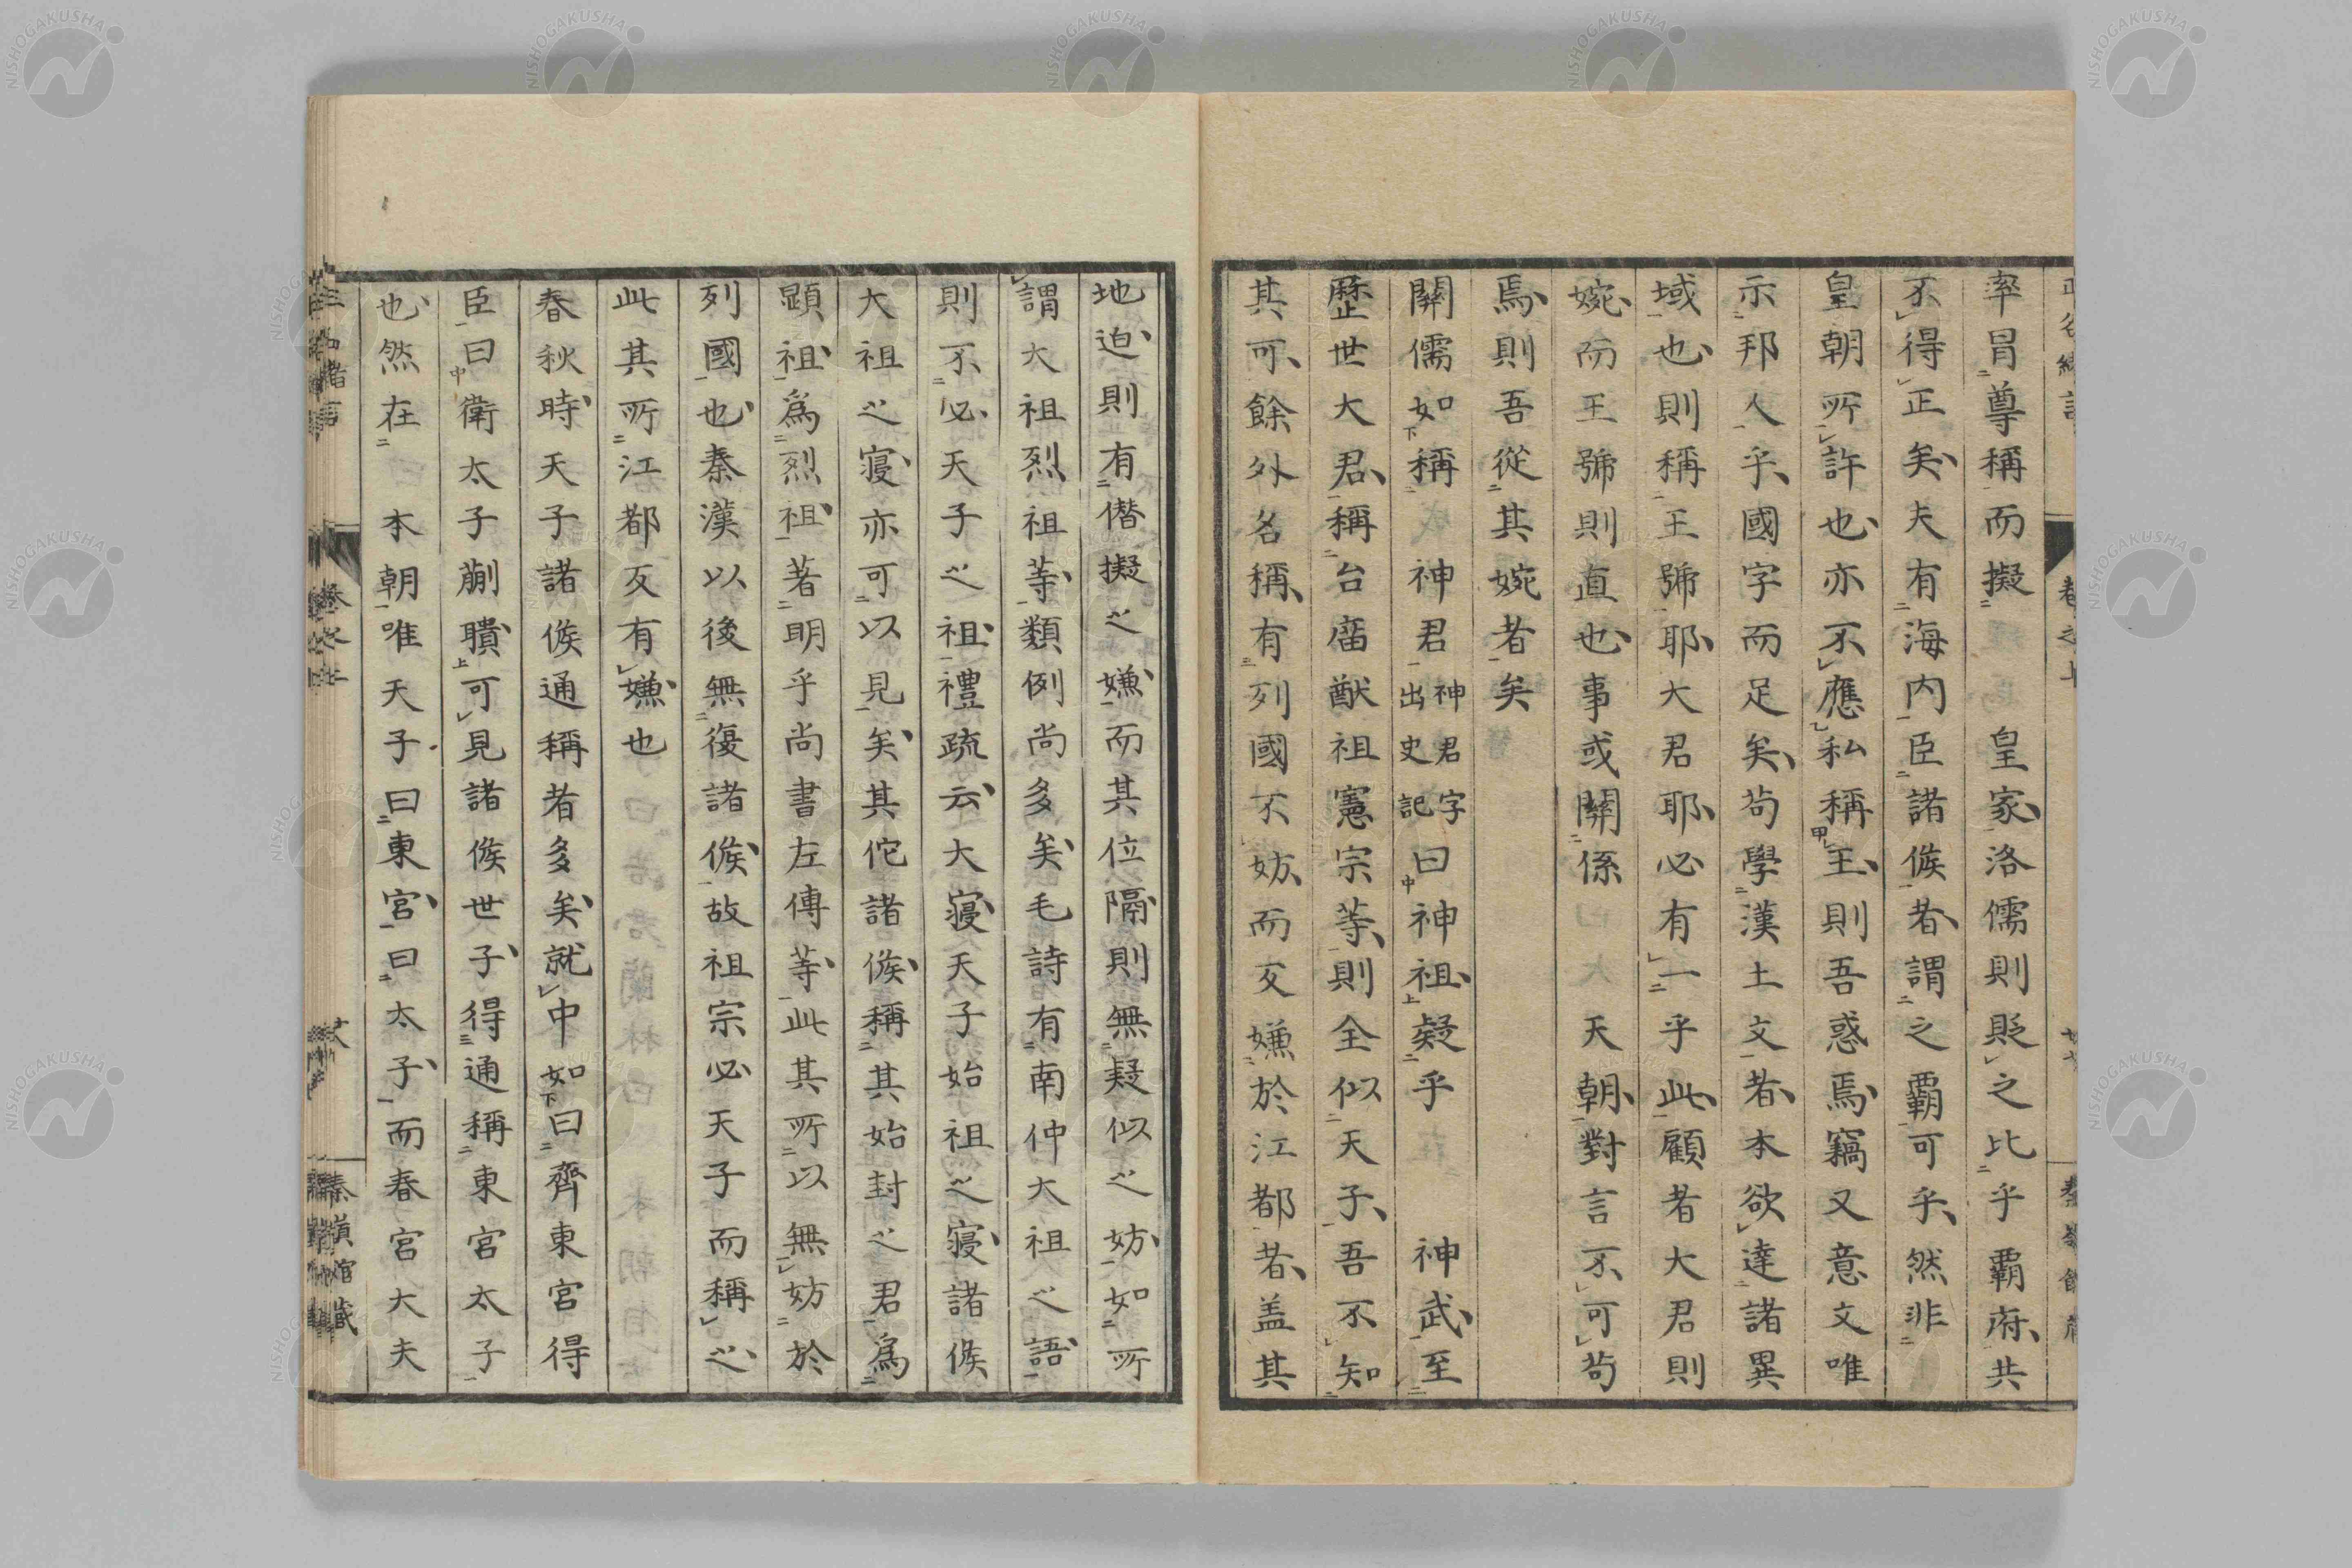 率冒尊稱而擬　皇家洛儒則貶之比乎覇府共
不得正矣夫有海内臣諸侯者謂之覇可乎然非
皇朝所許也亦不應私稱王則吾惑焉竊又意文唯
示邦人乎國字而足矣苟學漢土文者本欲達諸異
域也則稱王號耶大君耶必有一乎此顧者大君則
婉而王號則直也事或關係　天朝對言不可苟
焉則吾從其婉者矣
關儒如稱　神君神君字出史記曰神祖疑乎　神武至
歴世大君稱台廟猷祖憲宗等則全似天子吾不知
其可餘外名稱有列國不妨而反嫌於江都者盖其
地迫則有僭擬之嫌而其位隔則無疑似之妨如所
謂大祖烈祖等類例尚多矣毛詩有南仲大祖之語
則不必天子之祖禮疏云大寝天子始祖之寝諸侯
大祖之寝亦可以見矣其佗諸侯稱其始封之君爲
顕祖爲烈祖著明乎尚書左傳等此其所以無妨於
列國也秦漢以後無復諸侯故祖宗必天子而稱之
此其所江都反有嫌也
春秋時天子諸侯通稱者多矣就中如曰齊東宮得
臣曰衛太子蒯聵可見諸侯世子得通稱東宮太子
也然在　本朝唯天子曰東宮曰太子而春宮大夫
NISHOGAKUSHA